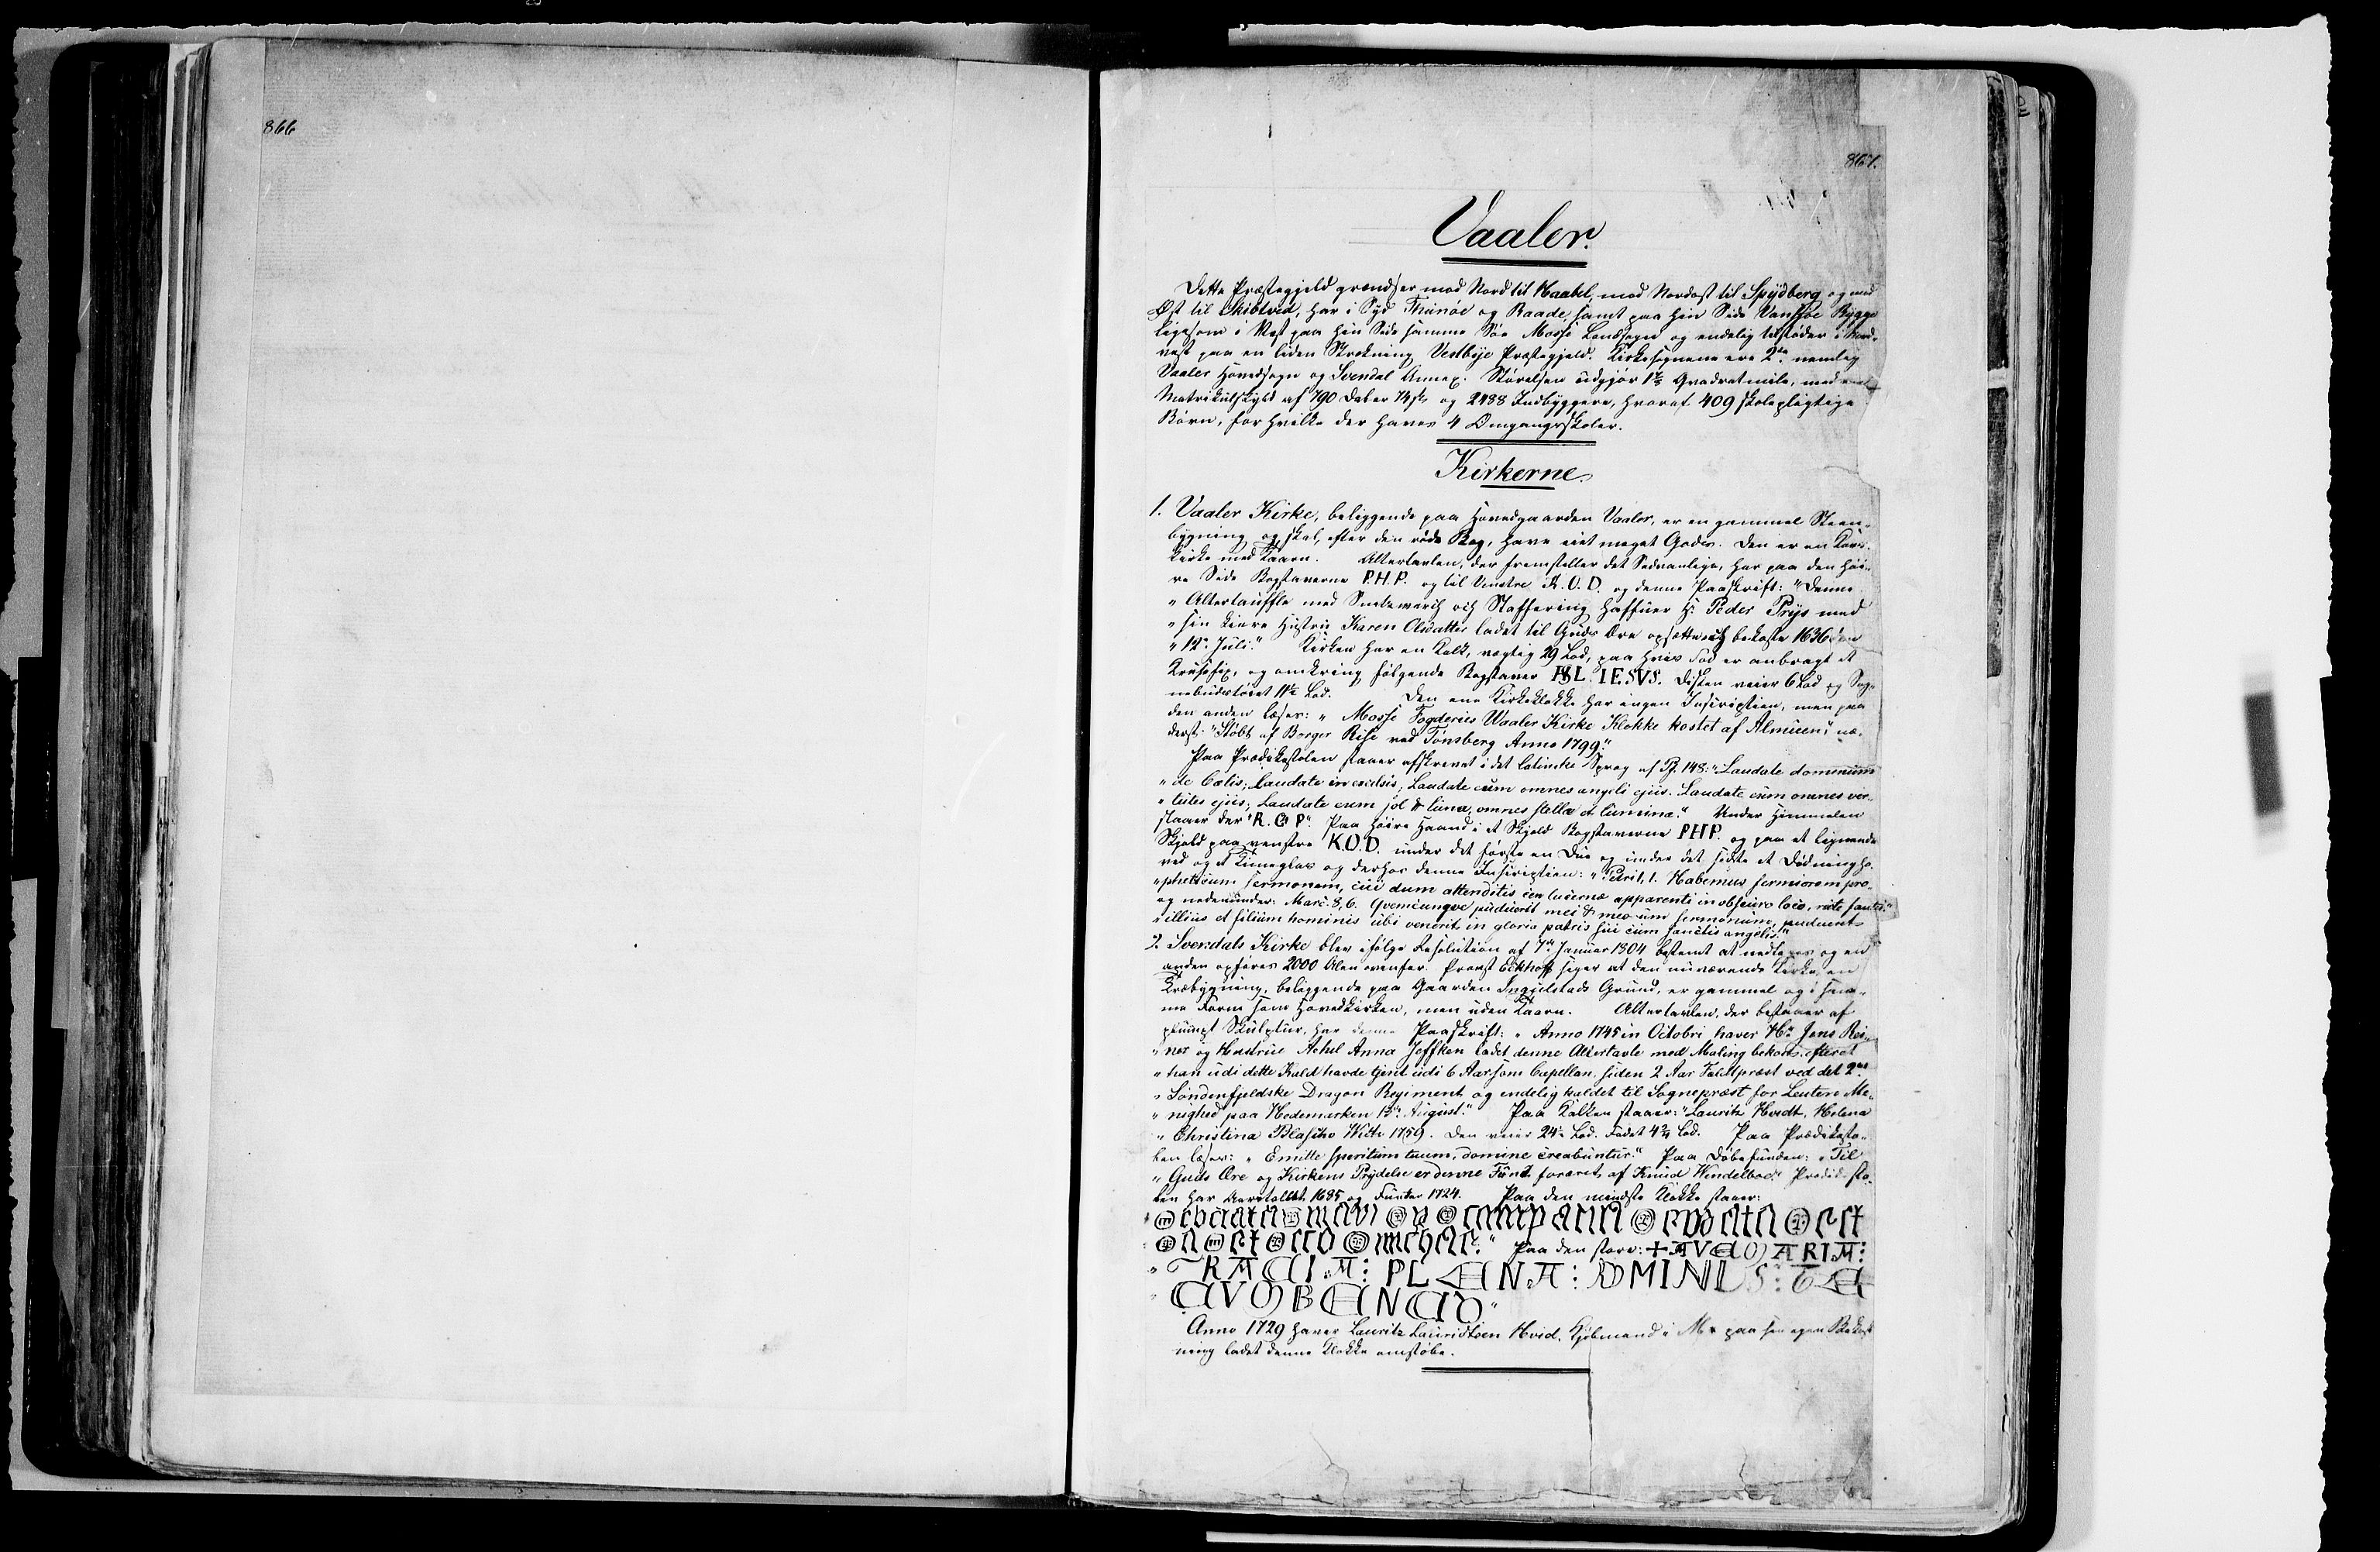 866
867.
Vaaler.
Dette Præstegjeld grændser mod Nord til Haabel, mod Nordost til Spydberg og mod
Øst til Skibtved, har i Syd Thunøe og Raade, samt paa hin Side Vansjøe Rygge
ligesom i Vest paa hin Side samme Sø Mosse Landsogn og endelig tilstøder i Nord-
vest paa en liden Strækning Vestbye Præstegjeld. Kirkesognene ere 2de nemlig
Vaaler Hovedsogn og Svendal Annex. Størrelsen udgjør 1½ Qvadratmile, med
Matrikulskyld af 790 Daler 74 s og 2488 Indbyggere, hvoraf 409 skolepligtige
Børn, for hvilke der haves 4 Omgangsskoler.
Kirkerne
1. Vaaler Kirke, beliggende paa Hovedgaarden Vaaler, er en gammel Steen-
bygning og skal, efter den røde Bog, have eiet meget Gods. Den er en Kors-
kirke med Taarn. Altertavlen, der fremstiller det Sædvanlige, har paa den høi-
re Side Bogstaverne P.H.P. og til Venstre K.O.D. og denne Paaskrift: "Denne
" Altertauffle med Snedwerch och Staffering haffuer Hr Peder Prys med
" sin kiere Hustru Karen Olsdatter ladet til Guds Ære opsætte och bekoste 1636 den
" 12te Juli." Kirken har en Kalk, vægtig 29 Lod, paa hvis Fod er anbragt et
Krusifix, og omkring følgende Bogstaver IESVS. Disken veier 6 Lod og Sog-
nebudstøiet 11½ Lod. Den ene Kirkeklokke har ingen Inscription, men paa
den anden læses: " Mosse Fogderies Waaler Kirke Klokke kostet af Almuen," ne-
derst: "Støbt af Borger Riise ved Tønsberg Anno 1799."
Paa Prædikestolen staaer afskrevet i det latinske Sprog af Ps. 148: "Laudate dominum
" de Cælis; Laudate in excelsis; Laudate eum omnes angeli ejus. Laudate eum omnes vir-
" tutes ejus; Laudate eum sol & luna, omnes stellæ et lumina." Under Himmelen
staaer der "R. C. P." Paa høire Haand i et Skjold Bogstaverne P.H.P. og paa et lignende
Skjold paa venstre K.O.D. under det første en Due og under det sidste et Dødningho-
ved og et Timeglas og derhos denne Inscription: " Petri 1, 1. Habemus sermonem pro-
" pheticum sermonem, cui dum attenditis ceu lucernæ apparenti in obscuro loco, recte facitis."
og nedenunder: Marc. 8, 6. Qvemcunqve puduerit mei & meorum sermonum, puduerit
" illius et filium hominis ubi venerit in gloria patris sui cum sanctis angelis."
2. Svendals Kirke blev ifølge Resolution af 7de Januar 1804 bestemt at nedlægges og en
anden opføres 2000 Alen ovenfor. Provst Eckhoff siger at den nuværende Kirke, en
Træbygning, beliggende paa Gaarden Ingjelstads Grund, er gammel og i sam-
me Form som Hovedkirken, men uden Taarn. Altertavlen, der bestaaer af
plumpt Skulptur, har denne Paaskrift: " Anno 1745 in Octobri haver Hr Jens Rei-
" ner og Hustrue Achel Anna Jeffken ladet denne Altertavle med Maling bekoste efterat
" han udi dette Kald havde tjent udi 6 Aar som Capellan, siden 2 Aar Feldtpræst ved det 2det
" Søndenfjeldske Dragon Regiment og endelig kaldet til Sognepræst for Leuten Me-
" nighed paa Hedemarken 13de August." Paa Kalken staaer: "Lauritz Hvidt, Helena
" Christina Blasiho Witte 1759. Den veier 24½ Lod. Fadet 4¾ Lod. Paa Prædikesto-
len læses: " Emitte speritum tuum, domine creabuntur." Paa Døbefunden: " Til
" Guds Ære og Kirkens Prydelse er denne Funt foræret af Knud Wendelboe. Prædikesto-
len har Aarstallet 1685 og Funten 1724. Paa den mindste Klokke staaer:
Paa den store: + AVE MARIA:
" GRACIA: PLENA: DOMINUS: TE
" CUM BENED"
Anno 1729 haver Lauritz Lauridtsen Hvid, Kjøbmand i Mos paa sin egen Bekost-
ning ladet denne Klokke omstøbe.